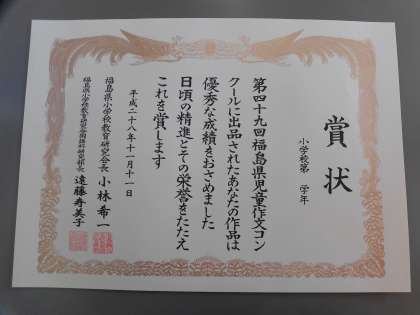 賞状
小学校第　学年
第四十九回福島県児童作文コン
クールに出品されたあなたの作品は
優秀な成績をおさめました
日頃の精進とその栄誉をたたえ
これを賞します
平成二十八年十一月十一日
福島県小学校教育研究会長　小林希一
福島県小学校教育研究会国語科研究部長　遠藤寿美子